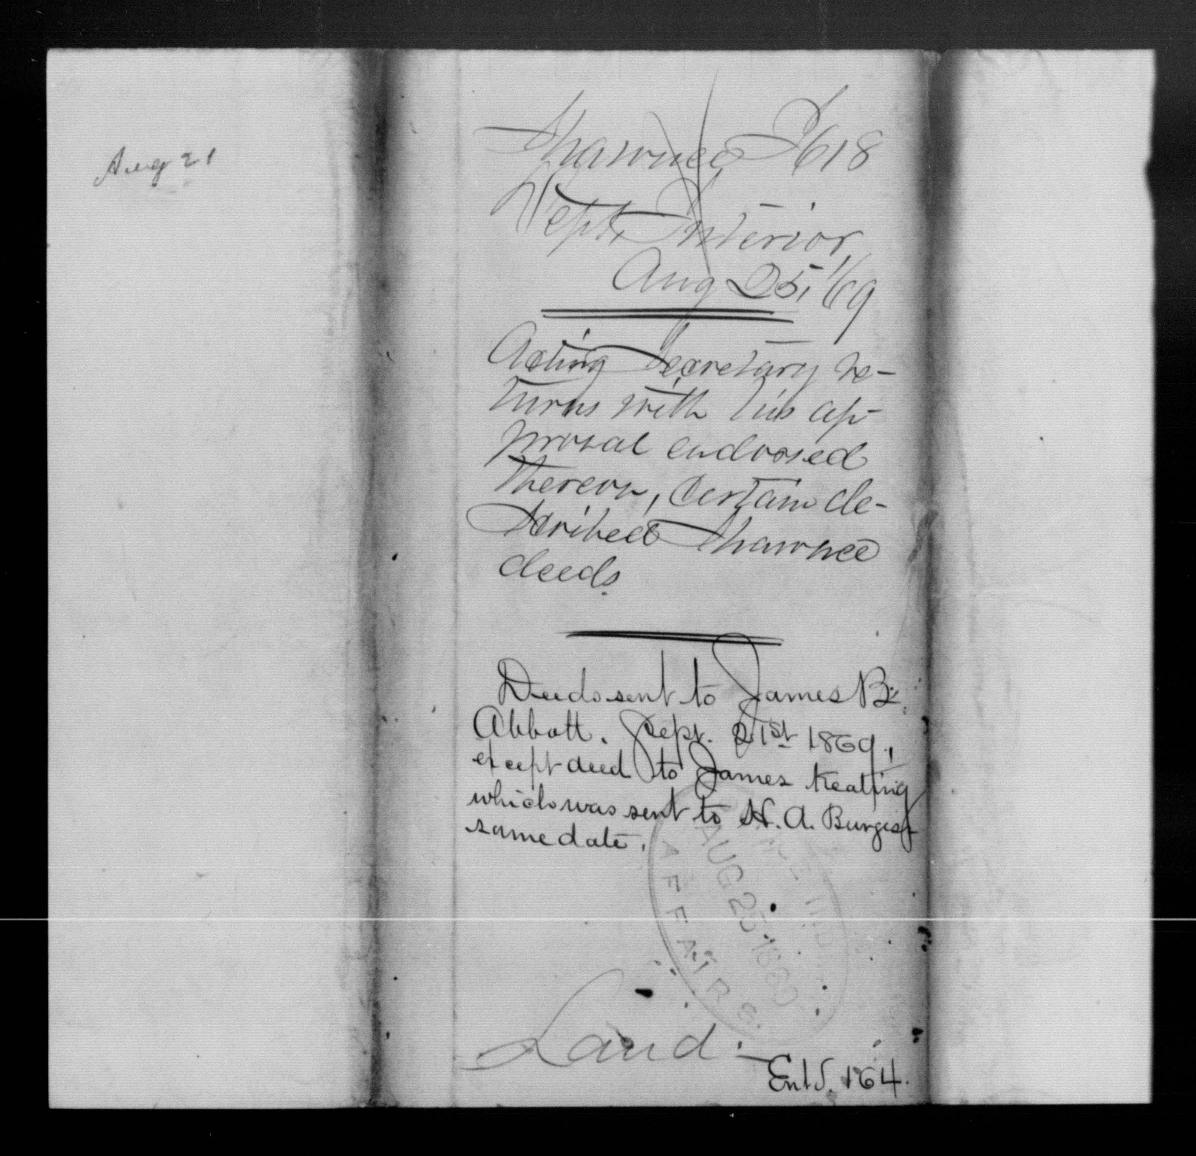 Aug 21
Shawnee I618
Dept. Interior,
Aug 25, '69
Acting Secretary re-
turns with his ap-
proval endorsed
thereon, certain de-
scribed Shawnee
deeds.
Deeds sent to James B.
Abbott. Sept. 21st 1869,
except deed to James Keating
which was sent to H. A. Burgess
same date.
AUG 25 1869
AFFAIRS.
Land.
Entd. 164.